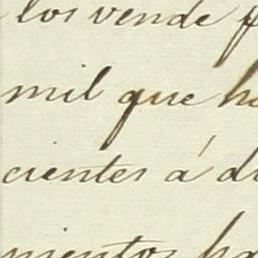 los vende
mil que
cientes á
mientos